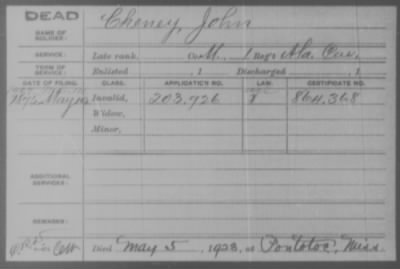 DEAD
NAME OF SOLDIER: Cheney, John
SERVICE: Late rank, Co. M, 1 Reg't Ala. Cav.
TERM OF SERVICE: Enlisted , 1 Discharged , 1
DATE OF FILING. CLASS. APPLICATION NO. LAW. CERTIFICATE NO.
May Invalid, 203,726 864,368
Widow,
Minor,
ADDITIONAL SERVICES:
REMARKS:
Died May 5, 1928, at Pontotoc, Miss.